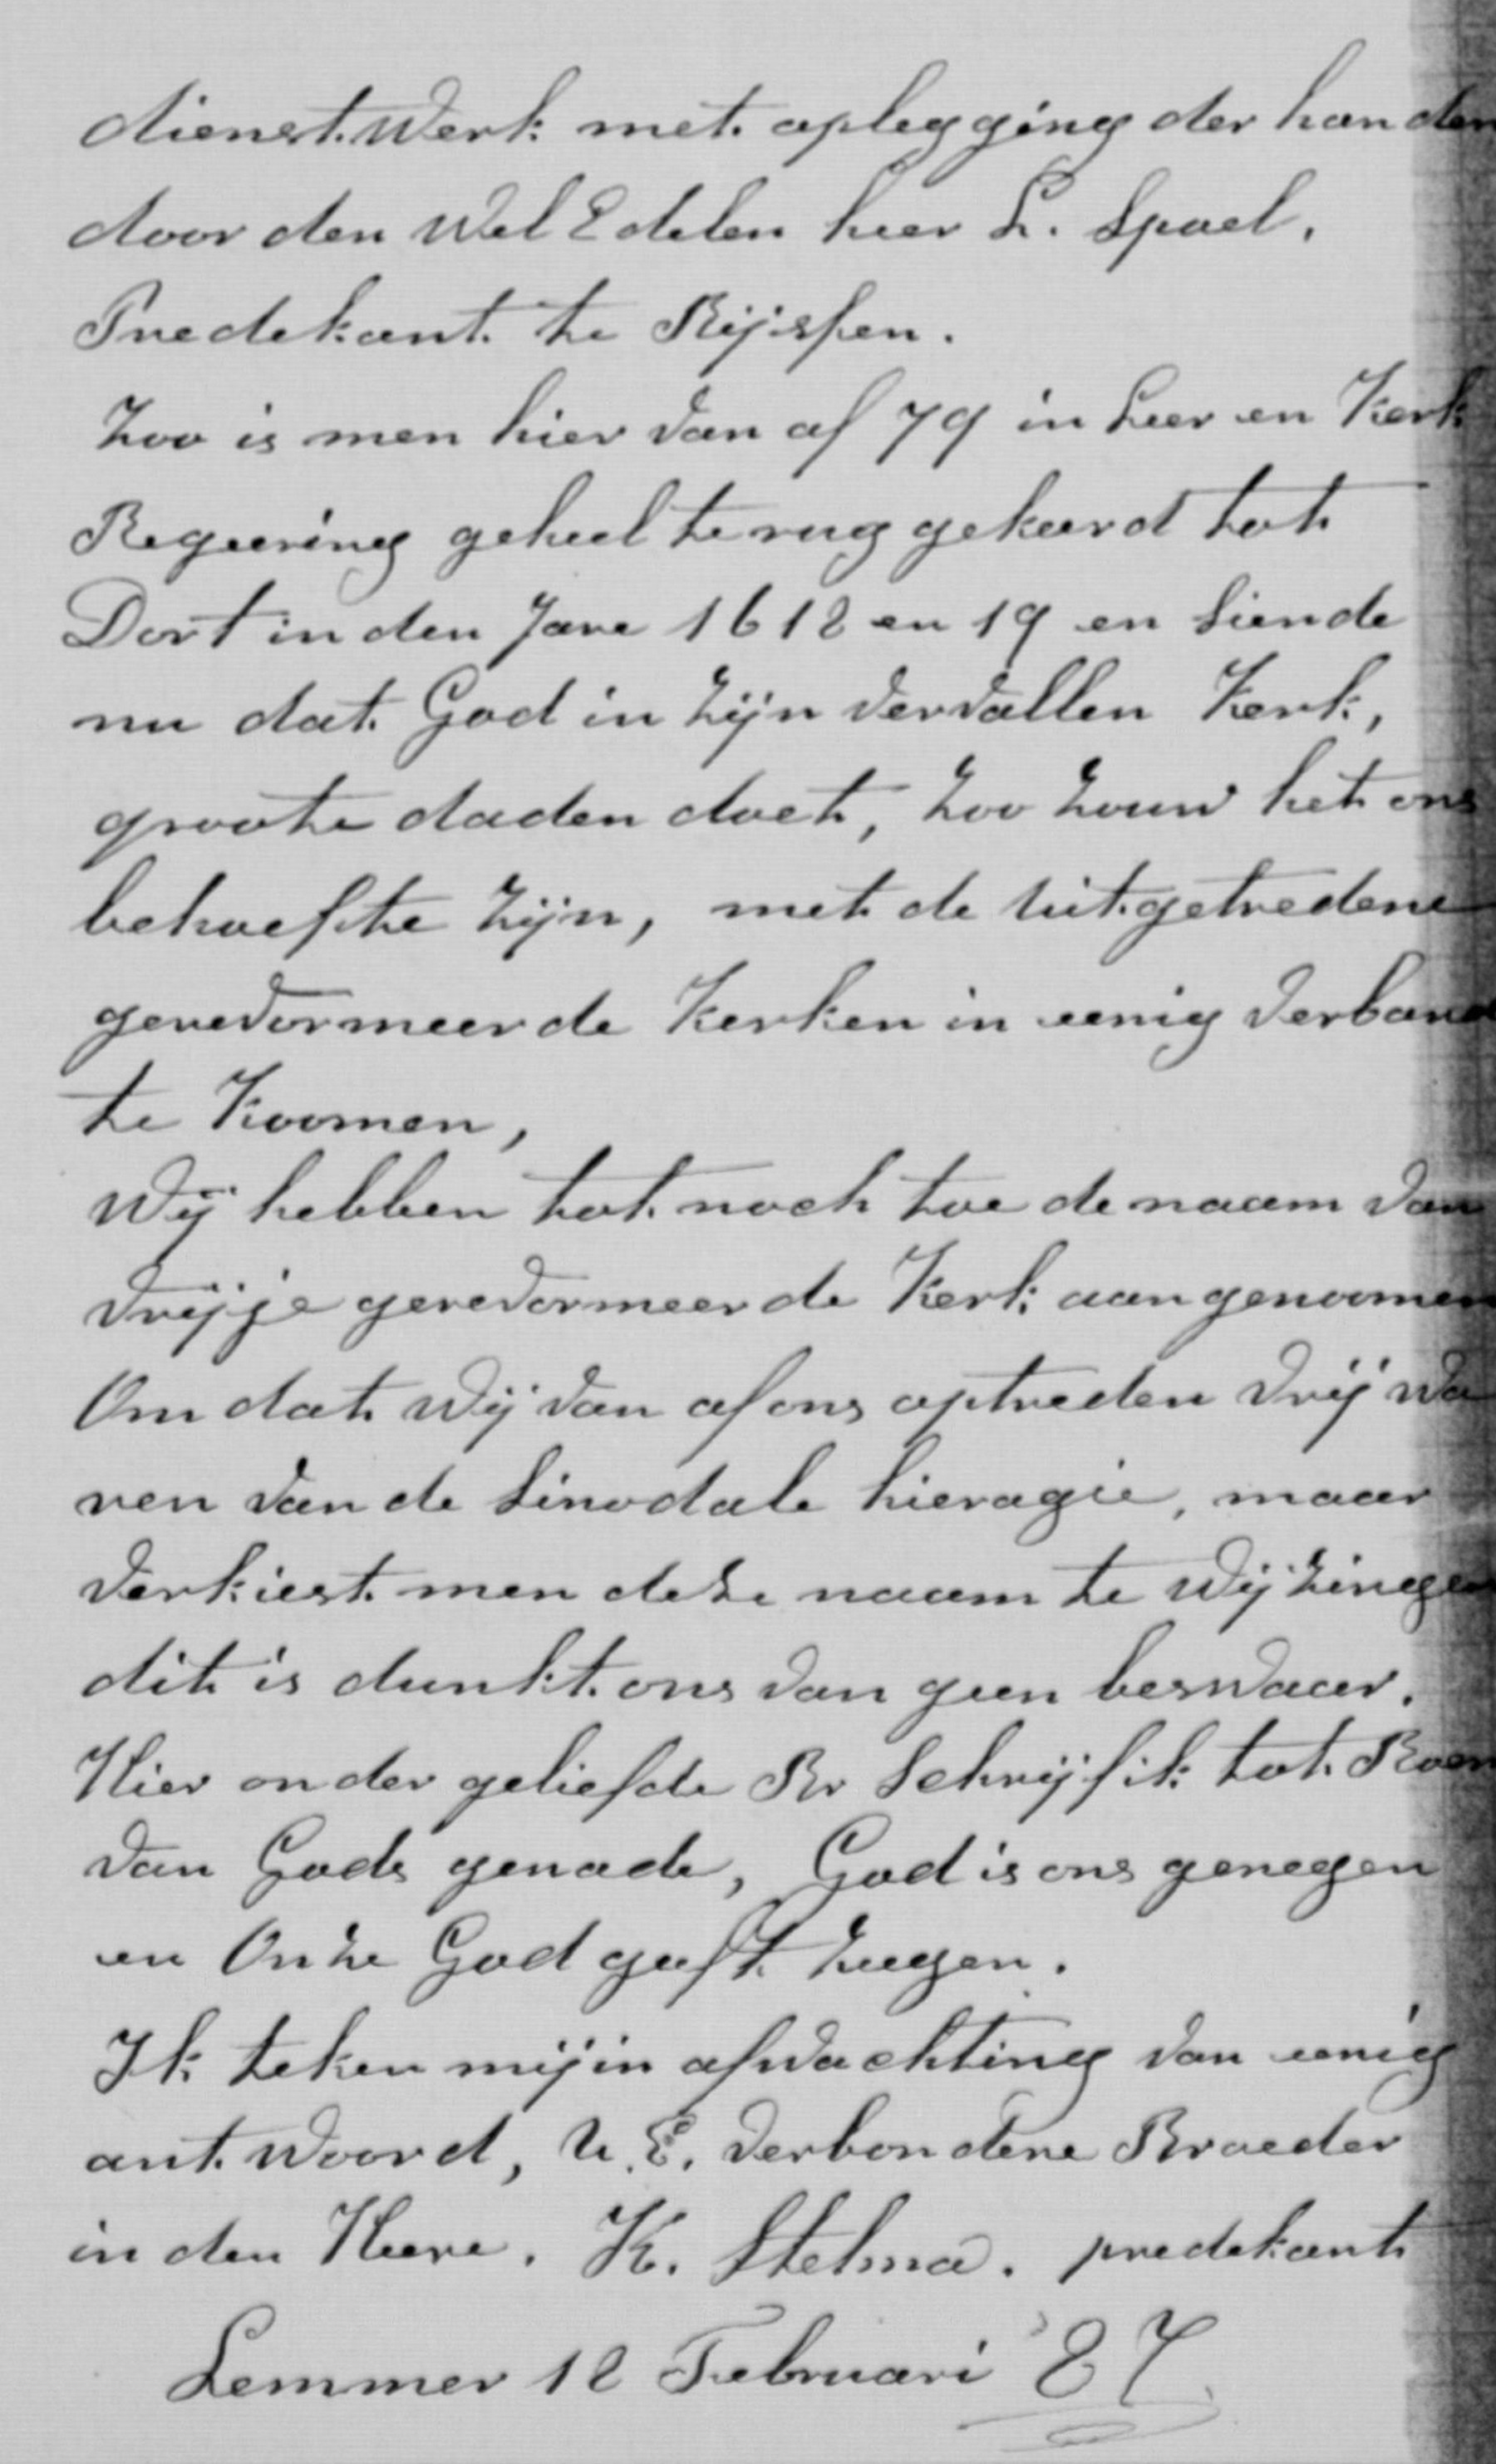 dienst.Werk met oplegging der handen
door den Wel Edelen heer L. Spoel,
Predekant te Rijspen.
Zoo is men hier van af 79 in Leer en Kerk
Regeering geheel terug gekeerd tot
Dort in den Jare 1618 en 19 en Siende
nu dat God in Zijn vervallen Kerk,
groote daden doet, Zoo Zouw het ons
behoefte Zijn, met de uitgetredene
gerevormeerde Kerken in eenig verband
te Koomen,
Wij hebben tot noch toe de naam van
vrijje gerevormeerde Kerk aangenoomen
Om dat Wij van af ons optreden vrij Wa
ren van de Sinodale hieragie, maar
verkiest men deze naam te Wijzingen
dit is dunkt ons van geen beswaar.
Hier onder geliefde Br Schrijf ik tot Roem
van Gods genade, God is ons genegen
en Onze God geeft Zeegen.
Ik teken mij in afwachting van eenig
antwoord, U.E. verbondene Broeder
in den Heere. K. Stelma. predekant
Lemmer 18 Februari '87